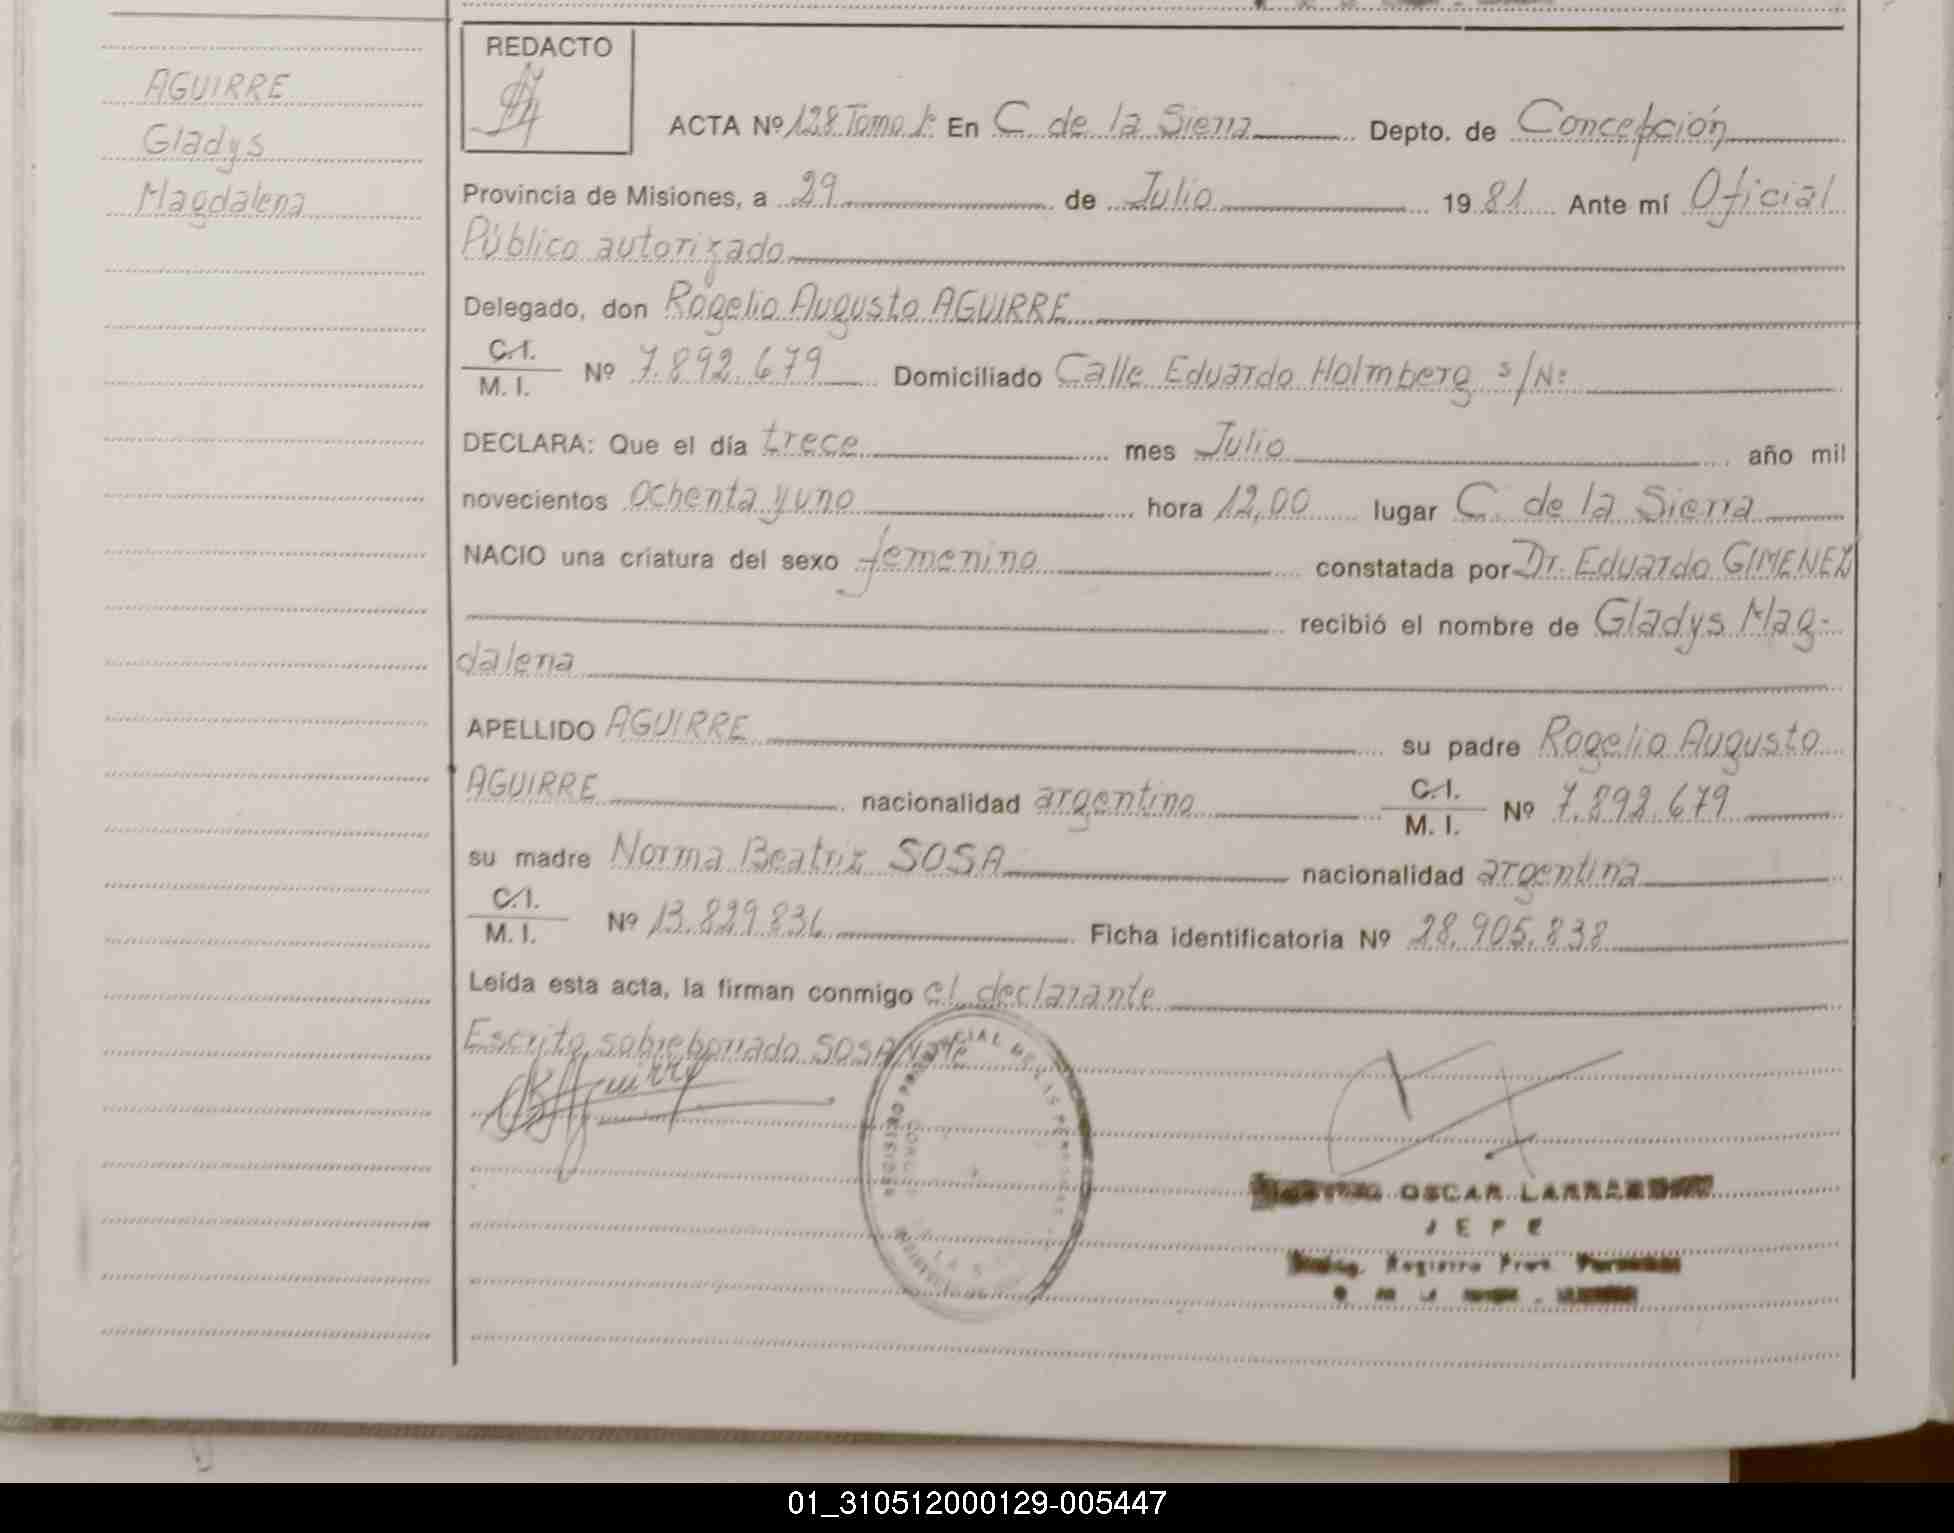 AGUIRRE
Gladys
Magdalena
REDACTO
ACTA Nº 128 Tomo 1º En C. de la Sierra Depto. de Concepción
Provincia de Misiones, a 29 de Julio 1981 Ante mí Oficial
Público autorizado
Delegado, don Rogelio Augusto AGUIRRE
C.I.
M. I. Nº 7.892.679 Domiciliado Calle Eduardo Holmberg s/Nº
DECLARA: Que el día trece mes Julio año mil
novecientos ochenta y uno hora 12,00 lugar C. de la Sierra
NACIO una criatura del sexo femenino constatada por Dr. Eduardo GIMENEZ
recibió el nombre de Gladys Mag-
dalena
APELLIDO AGUIRRE su padre Rogelio Augusto
AGUIRRE nacionalidad argentino C.I.
M. I. Nº 7.892.679
su madre Norma Beatriz SOSA nacionalidad argentina
C.I.
M. I. Nº 13.829.836 Ficha identificatoria Nº 28.905.838
Leída esta acta, la firman conmigo el declarante
Escrito sobreborrado SOSA Vale
OSCAR
JEFE
Registro Prov.
01_310512000129-005447